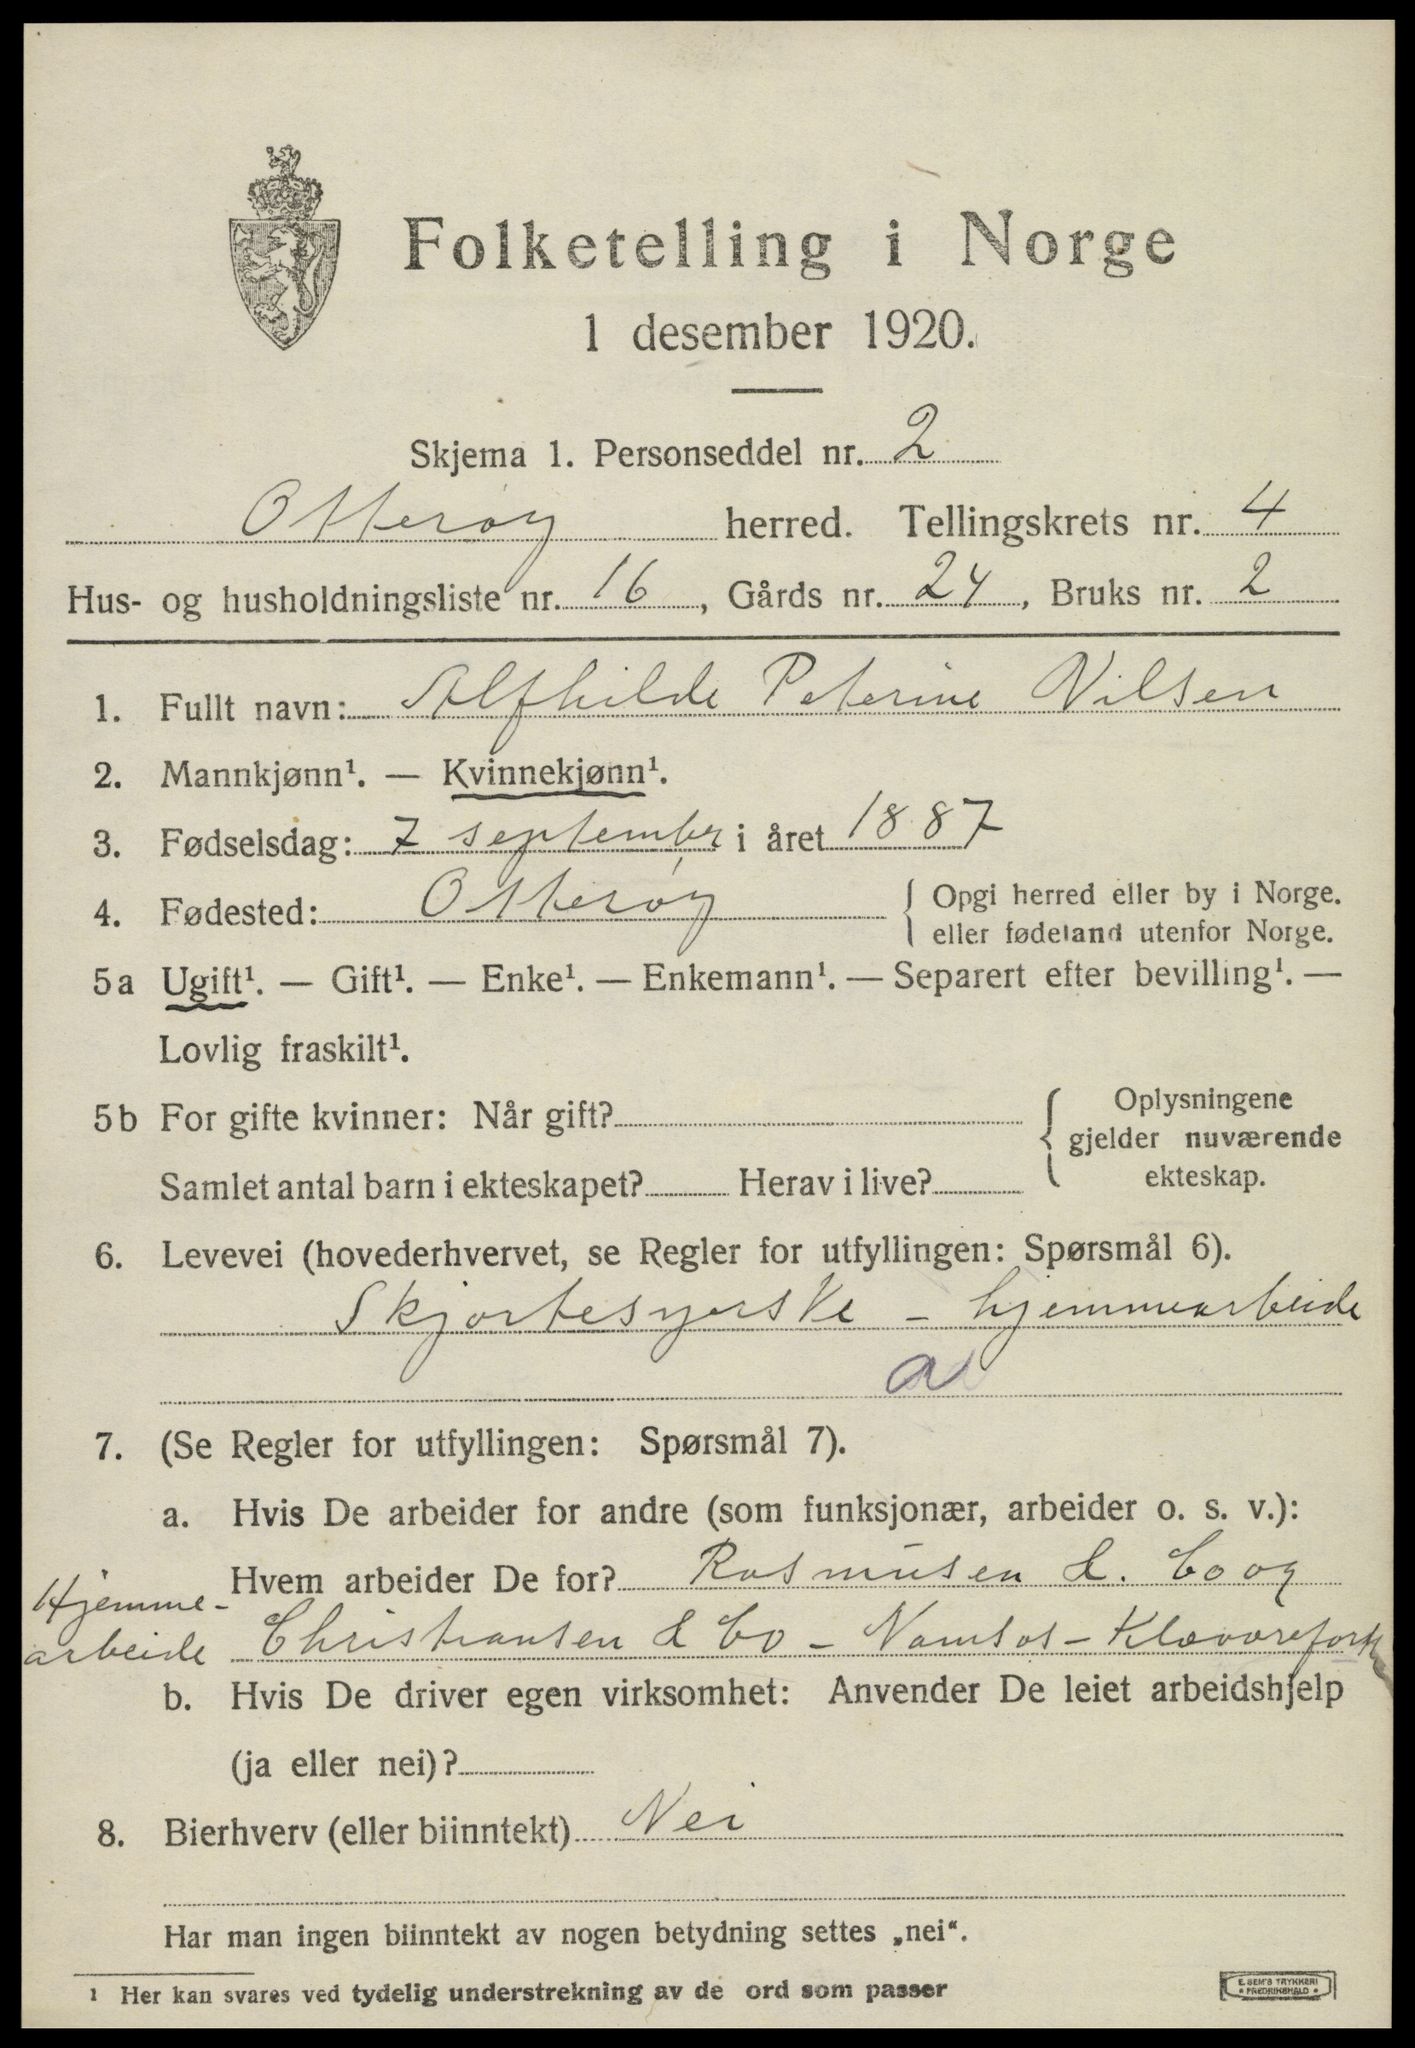 Folketelling i Norge
1 desember 1920.
Skjema 1. Personseddel nr. 2
Otterøy herred. Tellingskrets nr. 4
Hus- og husholdningsliste nr. 16, Gårds nr. 24, Bruks nr. 2
1. Fullt navn: Alfhilde Peterine Nilsen
2. Mannkjønn¹. — Kvinnekjønn¹.
3. Fødselsdag: 7 september i året 1887
4. Fødested: Otterøy { Opgi herred eller by i Norge.
eller fødeland utenfor Norge.
5a Ugift¹. — Gift¹. — Enke¹. — Enkemann¹. — Separert efter bevilling¹. —
Lovlig fraskilt¹.
5b For gifte kvinner: Når gift? { Oplysningene
gjelder nuværende
ekteskap.
Samlet antal barn i ekteskapet? Herav i live?
6. Levevei (hovederhvervet, se Regler for utfyllingen: Spørsmål 6).
Skjortesyerske - hjemmearbeide
a
7. (Se Regler for utfyllingen: Spørsmål 7).
a. Hvis De arbeider for andre (som funksjonær, arbeider o. s. v.):
Hvem arbeider De for? Rasmusen & Co og
Hjemme-
arbeide Christiansen & Co - Namsos -
b. Hvis De driver egen virksomhet: Anvender De leiet arbeidshjelp
(ja eller nei)?
8. Bierhverv (eller biinntekt) Nei
Har man ingen biinntekt av nogen betydning settes „nei“.
¹ Her kan svares ved tydelig understrekning av de ord som passer
E. SEM'S TRYKKERI
FREDRIKSHALD